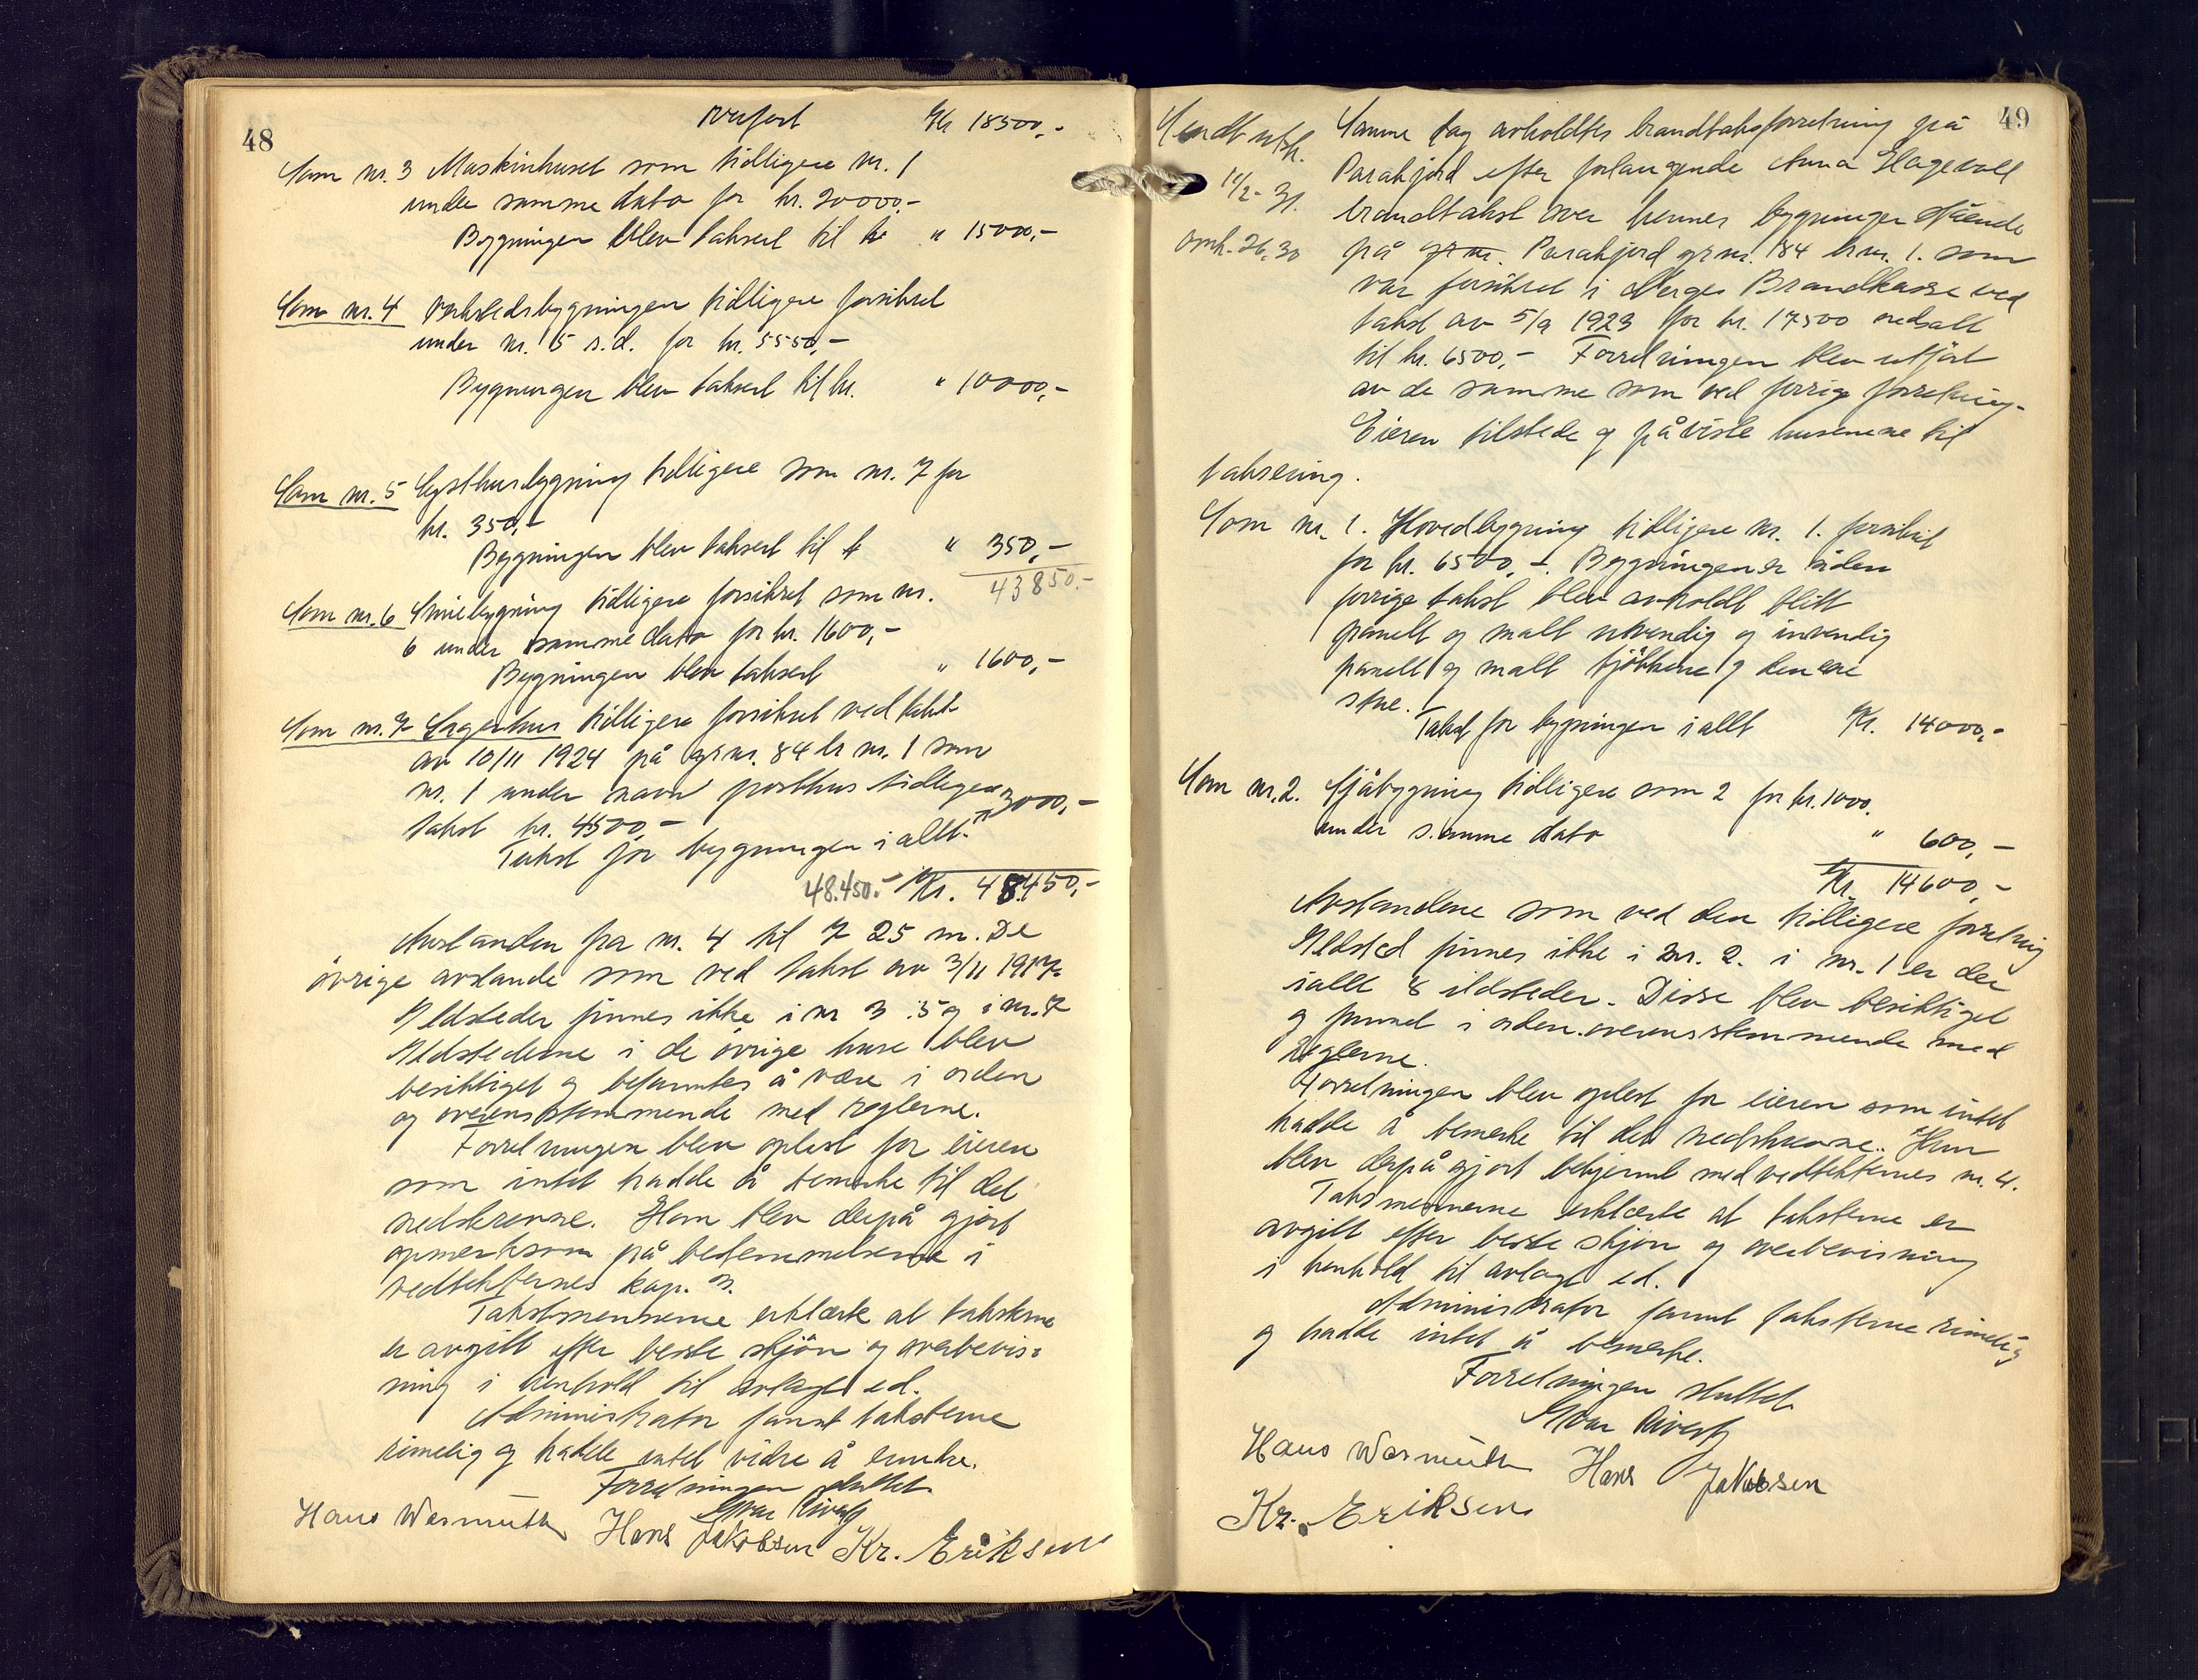 48
overført Kr 18500,-
Som nr. 3 Maskinhuset som tidligere nr. 1
under samme dato for kr. 20000,-
Bygningen blev taksert til kr " 15000,-
Som nr. 4 Verkstedsbygningen tidligere forsikret
under nr. 5 s.d. for kr. 5550,-
Bygningen blev taksert til kr. " 10000,-
Som nr. 5 Lysthusbygning tidligere som nr. 7 for
kr. 350,-
Bygningen blev taksert til k " 350,-
43850.-
Som nr. 6 Smiebygning tidligere forsikret som nr.
6 under samme dato for kr. 1600,-
Bygningen blev taksert " 1600,-
Som nr. 7 Lagerhus tidligere forsikret ved takst
av 10/11 1924 på grnr. 84 br nr. 1 som
nr. 1 under navn posthus tidligere
takst kr. 4500,-
Takst for bygningen i allt. " 3000,-
48.450.- Kr. 48450,-
Avstanden fra nr. 4 til 7 25 m. De
øvrige avstande som ved takst av 3/11 1917.
Ildsteder finnes ikke i nr 3 .5 og i nr. 7
Ildstederne i de øvrige huse blev
besiktiget og befantes å være i orden
og overensstemmende med reglerne.
Forretningen blev oplest for eieren
som intet hadde å bemerke til det
nedskrevne. Han blev derpå gjort
opmerksom på bestemmelserne i
vedtekternes kap. 3.
Takstmennerne erklærte at taksterne
er avgitt efter beste skjøn og overbevis=
ning i henhold til avlagt ed.
Administrator fannt taksterne
rimelig og hadde intet videre å
Forretningen sluttet.
Hans Wermuth Hans Jakobsen Kr. Eriksen
49
Sendt utsk.
11/2- 31.
omk. 26,30
Samme dag avholdtes brandtakstforretning på
Parakjord efter forlangende Anna Hagevoll
brandtakst over hennes bygninger stående
på gr nr. Parakjord grnr. 84 brnr. 1. som
var forsikret i Norges Brandkasse ved
takst av 5/9 1923 for kr. 17500 nedsatt
til kr. 6500,- Forretningen blev utført
av de samme som ved forrige forretning.
Eieren tilstede og påviste husenene til
taksering.
Som nr. 1. Hovedbygning tidligere nr. 1. forsikret
for kr. 6500,-. Bygningen er siden
forrige takst blev avholdt blitt
panelt og malt utvendig og invendig
panelt og malt kjøkkene og denene
stue.
Takst for bygningen i allt Kr. 14000,-
Som nr. 2. Sjåbygning tidligere som 2 for kr. 1000.
under samme dato " 600,-
Kr. 14600,-
Avstandene som ved den tidligere forretning
Ildsted finnes ikke i nr. 2. i nr. 1 er der
i allt 8 ildsteder. Disse blev besiktiget
og funnet i orden overensstemmende med
reglerne.
Forretningen blev oplest for eieren som intet
hadde å bemerke til det nedskrevne. Hun
blev derpå gjort bekjennt med vedtekternes nr. 4.
Taksmennerne erklærte at taksterne er
avgitt efter beste skjøn og overbevisning
i henhold til avlagt ed.
Administrator fannt taksterne rimelig
og hadde intet å bemerke.
Forretningen sluttet
Hans Wermuth Hans Jakobsen
Kr. Eriksen